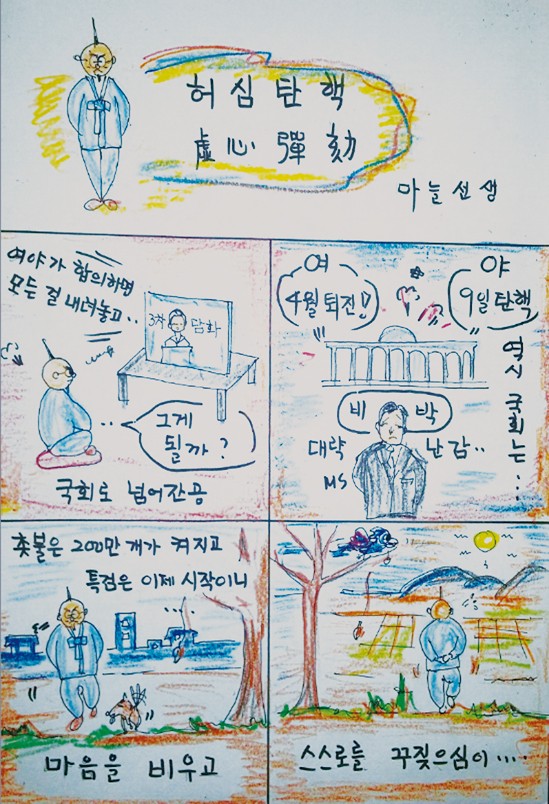 허심탄핵
虛心彈劾
마늘선생
여야가 합의하면
모든 걸 내려놓고..
3차 담화
그게
될까?
국회로 넘어간 공
여
4월 퇴진!
야
9일 탄핵
역시 국회는...
비 박
대략 난감..
MS
촛불은 200만 개가 켜지고
특검은 이제 시작이니
....
마음을 비우고
스스로를 꾸짖으심이....